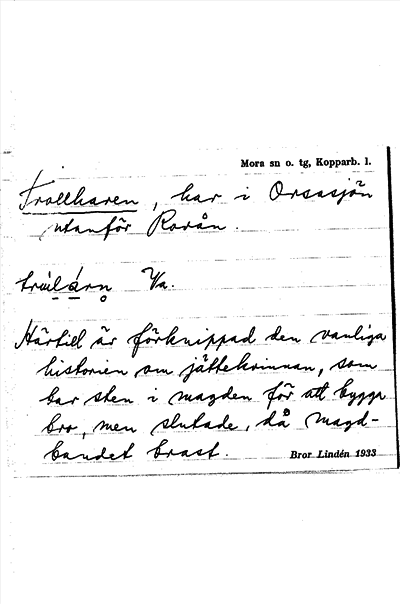 Mora sn o. tg, Kopparb. l.
Trollharen, har i Orsasjön
utanför Rorån.
Va.
Härtill är förknippad den vanliga
historien om jättekvinnan, som
bar sten i magden för att bygga
bro, men slutade, då magd-
bandet brast.
Bror Lindén 1933